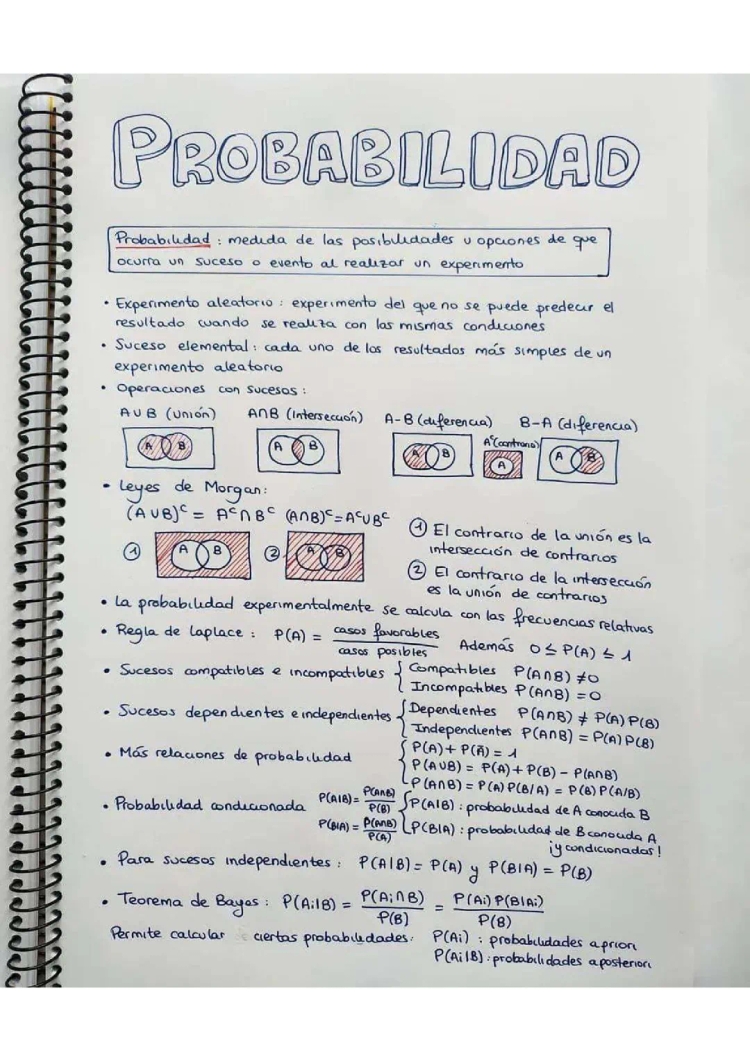 PROBABILIDAD
Probabilidad : medida de las posibilidades u opciones de que
ocurra un suceso o evento al realizar un experimento
• Experimento aleatorio : experimento del que no se puede predecir el
resultado cuando se realiza con las mismas condiciones
• Suceso elemental : cada uno de los resultados más simples de un
experimento aleatorio
• Operaciones con sucesos :
A∪B (Unión) A∩B (Intersección) A-B (diferencia) B-A (diferencia)
Aᶜ(contrario)
A B A B A B A A B
• Leyes de Morgan:
(A∪B)ᶜ = Aᶜ∩Bᶜ (A∩B)ᶜ=Aᶜ∪Bᶜ
① A B ② A B
① El contrario de la unión es la
intersección de contrarios
② El contrario de la intersección
es la unión de contrarios
• La probabilidad experimentalmente se calcula con las frecuencias relativas
• Regla de Laplace : P(A) = casos favorables / casos posibles Además 0 ≤ P(A) ≤ 1
• Sucesos compatibles e incompatibles { Compatibles P(A∩B) ≠0
Incompatibles P(A∩B) =0
• Sucesos dependientes e independientes { Dependientes P(A∩B) ≠ P(A) P(B)
Independientes P(A∩B) = P(A) P(B)
• Más relaciones de probabilidad { P(A) + P(Ā) = 1
P(A∪B) = P(A) + P(B) - P(A∩B)
P(A∩B) = P(A) P(B/A) = P(B) P(A/B)
• Probabilidad condicionada P(A|B) = P(A∩B) / P(B) { P(A|B) : probabilidad de A conocida B
P(B|A) = P(A∩B) / P(A) P(B|A) : probabilidad de B conocida A
¡y condicionados!
• Para sucesos independientes : P(A|B) = P(A) y P(B|A) = P(B)
• Teorema de Bayes : P(Ai|B) = P(Ai∩B) / P(B) = P(Ai) P(B|Ai) / P(B)
Permite calcular ciertas probabilidades. P(Ai) : probabilidades a priori
P(Ai|B) : probabilidades a posteriori